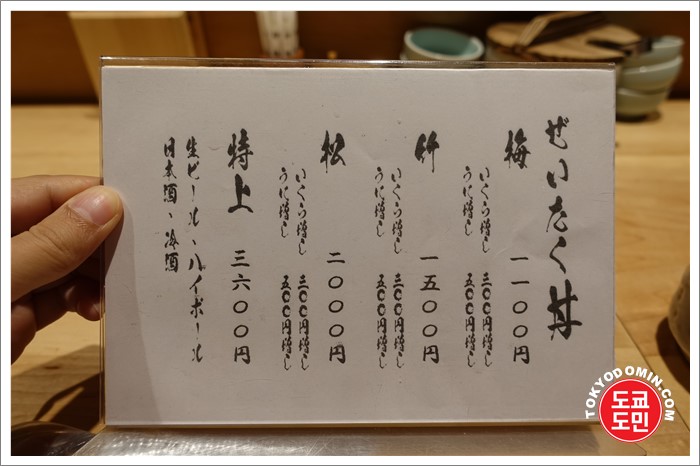 ぜいたく丼
梅 一一〇〇円
いくら増し 三〇〇円増し
うに増し 五〇〇円増し
竹 一五〇〇円
いくら増し 三〇〇円増し
うに増し 五〇〇円増し
松 二〇〇〇円
いくら増し 三〇〇円増し
うに増し 五〇〇円増し
特上 三六〇〇円
生ビール、ハイボール
日本酒、冷酒
TOKYODOMIN.COM
도쿄
도민